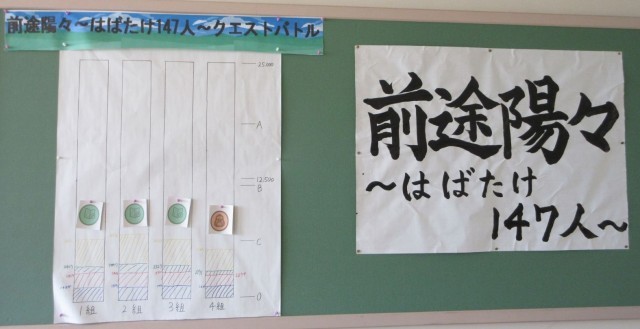 前途陽々～はばたけ147人～クエストバトル
25,000
A
12,500
B
C
0
1組 2組 3組 4組
前途陽々
～はばたけ
147人～